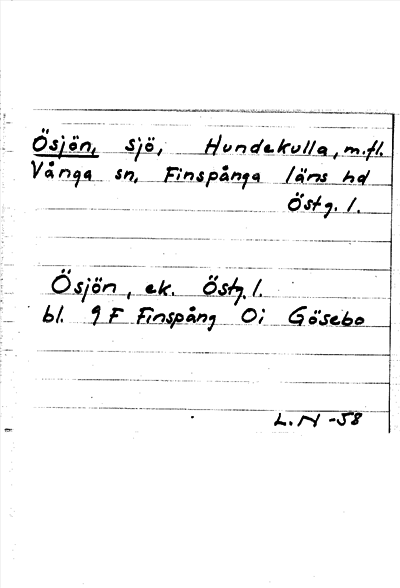 Ösjön, sjö, Hundekulla, m.fl.
Vånga sn, Finspånga läns hd
Östg. l.
Ösjön, ek. Östg. l.
bl. 9 F Finspång 0i Gösebo
L. N -58